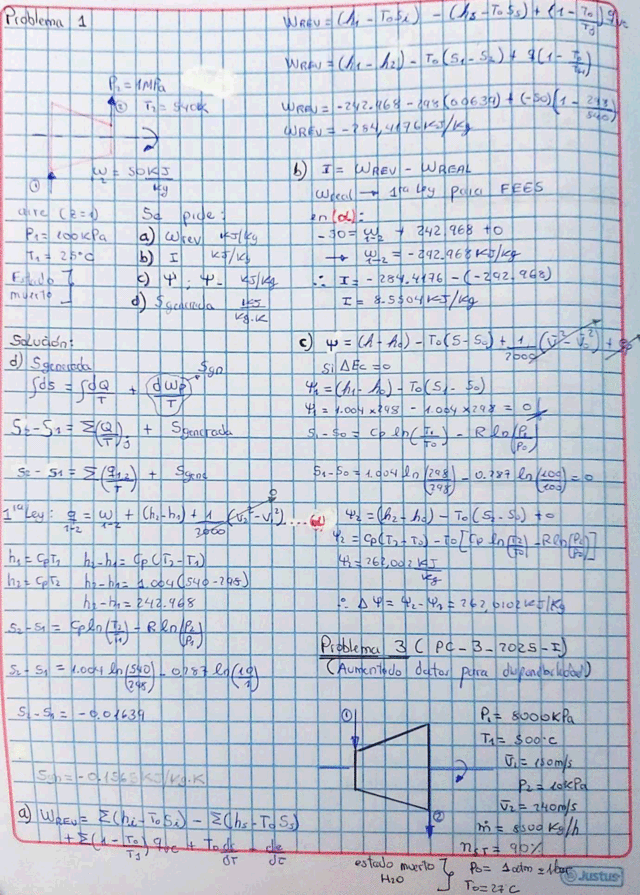 Problema 1
P₂ = 1MPa
② T₂ = 540K
①
aire (z=1)
P₁ = 100KPa
T₁ = 25°C
Estado
muerto
Se pide:
a) Wrev KJ/kg
b) I KJ/kg
c) Ψ₁ Ψ₂ KJ/kg
d) Sgenerada KJ/kg.K
Solución:
d) Sgenerada
∫ds = ∫dQ/T + dWp/T Sgn
S₂-S₁ = Σ(Q/T)j + Sgenerada
S₂-S₁ = Σ(q1-2/T) + Sgen
1ra Ley: q1-2 = w1-2 + (h₂-h₁) + 1/2000 (V₂²-V₁²) ... α
h₁ = CpT₁ h₂-h₁ = Cp(T₂-T₁)
h₂ = CpT₂ h₂-h₁ = 1.004(540-298)
h₂-h₁ = 242.968
S₂-S₁ = Cp ln(T₂/T₁) - R ln(P₂/P₁)
S₂-S₁ = 1.004 ln(540/298) - 0.287 ln(10/1)
S₂-S₁ = -0.01639
a) WREV = Σ(hi-ToSi) - Σ(hs-ToSs)
WREV = (h₁-h₂) - To(S₁-S₂) + q(1-
WREV = -284,4176 KJ/kg
b) I = WREV - WREAL
Wreal → 1ra Ley para FEES
en (α):
-50 = w1-2 + 242.968 + 0
→ w1-2 = -292.968 KJ/kg
∴ I = -284.4176 - (-292.968)
I = 8.5504 KJ/kg
c) Ψ = (h-h₀) - T₀(S-S₀) + 1/2000 (V²-V₀²) +
Si ΔEc = 0
Ψ₁ = (h₁-h₀) - T₀(S₁-S₀)
Ψ₁ = 1.004×298 - 1.004×298 = 0
S₁-S₀ = Cp ln(T₁/T₀) - R ln(P₁/P₀)
S₁-S₀ = 1.004 ln(298/298) - 0.287 ln(100/100) = 0
Ψ₂ = (h₂-h₀) - T₀(S₂-S₀) + 0
Ψ₂ = Cp(T₂-T₀) - T₀[Cp ln(T₂/T₀) - R ln(P₂/P₀)]
∴ ΔΨ = Ψ₂-Ψ₁ = 262,0102 KJ/kg
Problema 3 (PC-3-2025-I)
(Aumentado datos para disponibilidad)
①
②
P₁ = 8000KPa
T₁ = 500°C
V̄₁ = 150m/s
P₂ = 10KPa
V̄₂ = 240m/s
ṁ = 8500 Kg/h
nST = 90%
estado muerto
H₂O
T₀ = 27°C
Justus